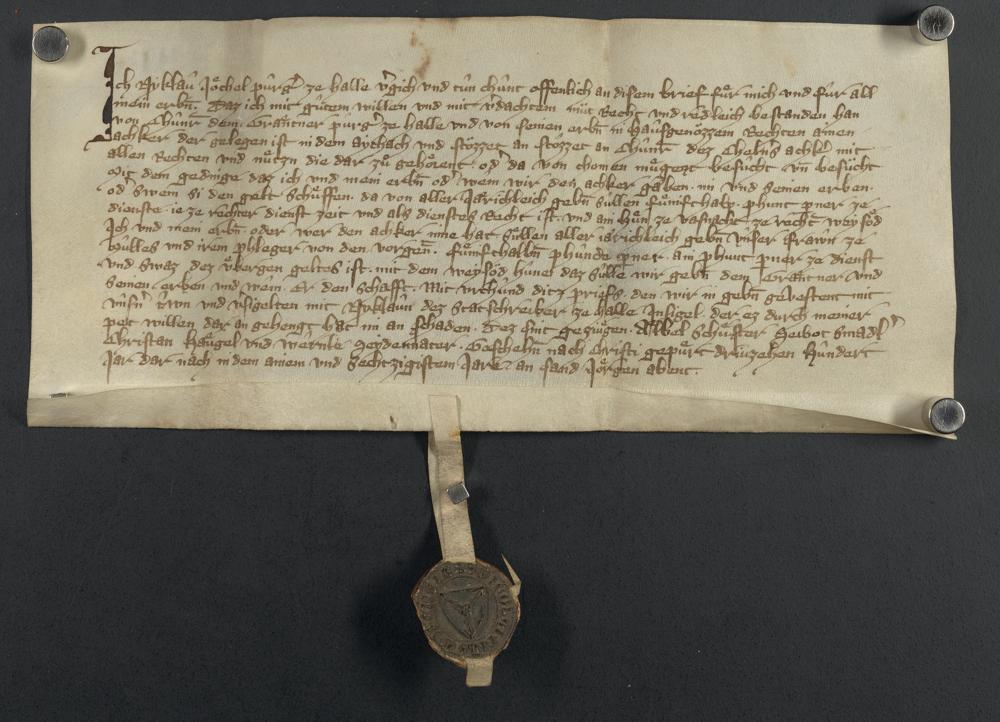 Ich Nyklau Jochel purger ze Halle vergich und tun chunt offenlich an disem brief fur mich und fur all
mein erbn. Daz ich mit gutem willen und mit verdachtem mut Recht und redleich bestanden han
von Chunr dem Grantner purger ze halle und von seinen erbn in hausgenozzem Rechten ainen
achker der gelegen ist in dem Aychach und stozzet an stozzet an Chunr dez achker mit
allen Rechten und nutzn die dar zu gehorent. oder da von chomen mugent besucht. un besucht
Mit dem gedinge daz ich und mein erbn oder wem wir den achker gaben. im und seinen erben.
oder swem si den gelt schuffen. da von aller Jarichleich gebn sullen funfthalp. phunt pner ze
dienste ie ze rechter dienst zeit und als dienstes Recht ist. und ain hun ze vasnacht. ze recht weysod
Ich und mein erbn oder wer den achker inne hat sullen aller iarichleich gebn unser frawn ze
und irem phleger von den vorgen. funfthalbn phunde pner. ain phunt pner ze dienst
und swaz dez ubergen geltes ist. mit dem weysod hune daz sulle wir gebn dem Grantner und
seinen erben und wem. Er den schafft. Mit urchund ditz priefs. den wir in gebn gevestent mit
unsern trewn und mit Nyklaun dez Statschreiber ze halle Insigel. der ez durch meiner
pet willen dar an gehengt hat im an schaden. Dez sint gezeugen. Albel Schuster Seibot Smadl
Christan Raugel und Wernle Seydennater. Geschehn nach Christi gepurt dreuzehen Hundert
Jar dar nach in dem ainem und Sechtzigistem Jare. an sand Jorgen abent.